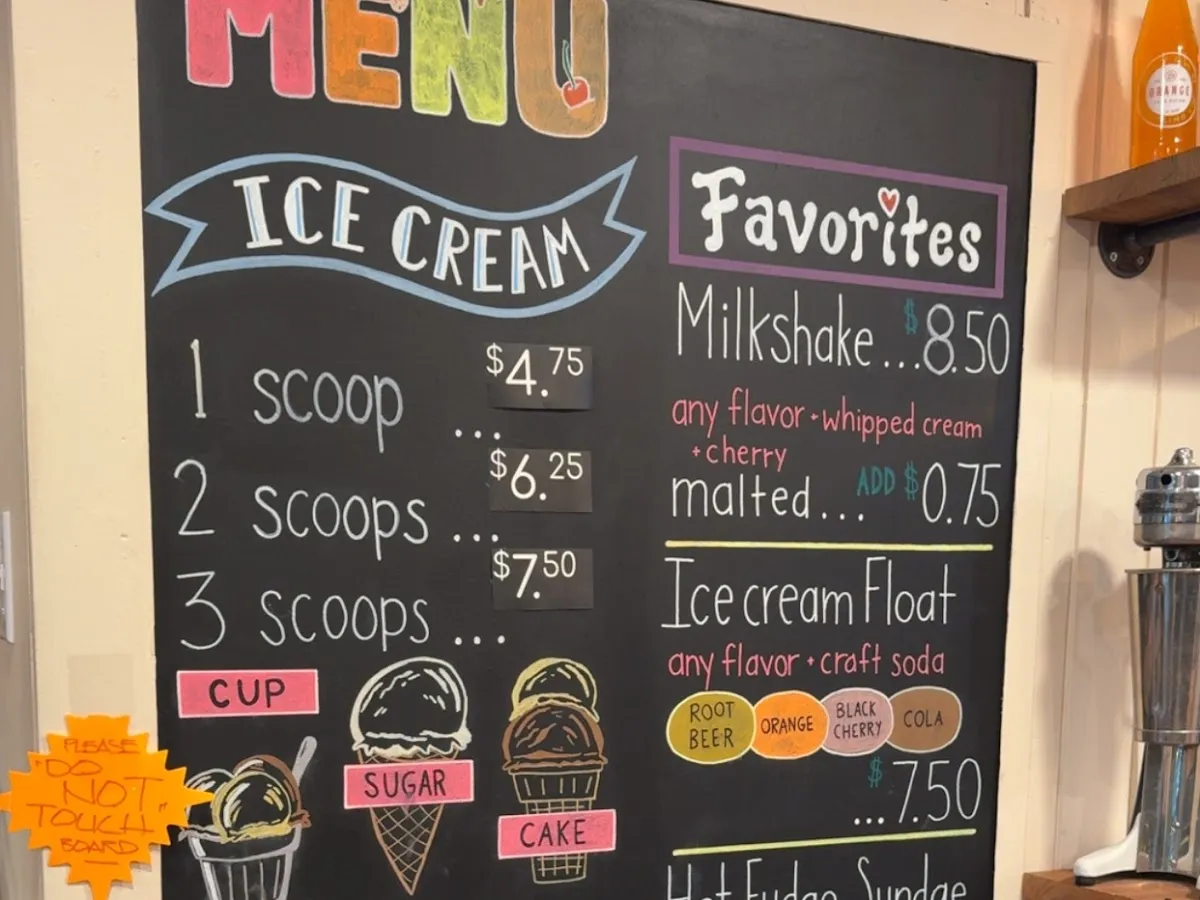 MENU
ICE CREAM
1 SCOOP ... $4.75
2 SCOOPS ... $6.25
3 SCOOPS ... $7.50
CUP
SUGAR
CAKE
PLEASE
"DO
NOT
TOUCH"
BOARD
Favorites
Milkshake...$8.50
any flavor + whipped cream
+ cherry
malted... ADD $0.75
Ice cream Float
any flavor + craft soda
ROOT
BEER
ORANGE
BLACK
CHERRY
COLA
$
...7.50
Hot Fudge Sundae
ORANGE